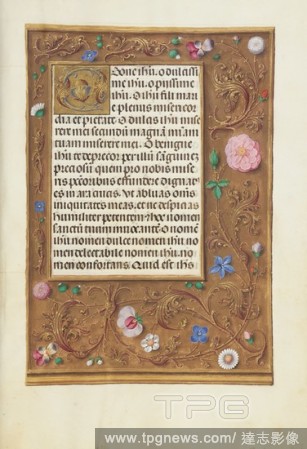 O bone ihu. o dulcissi
me ihu. o piissime
ihu. o ihu fili mari
e plenus misericor
dia et pietate O dulcis ihu mise
rere mei secundū magnā mīam
tuam miserere mei. O benigne
ihu te deprecor per illū sāguinē
preciosū quem pro nobis mise
ris pctoribus effundere dignat
es in ara crucis. vt abluas oms
iniquitates meas. et ne despicias
humiliter petentem et hoc nomen
sanctū tuum inuocantē. O nomē
ihu nomen dulce nomen ihu no
men delectabile nomen ihu. no
men confortans. Quid est ihs
TPG
www.tpgnews.com/ 達志影像